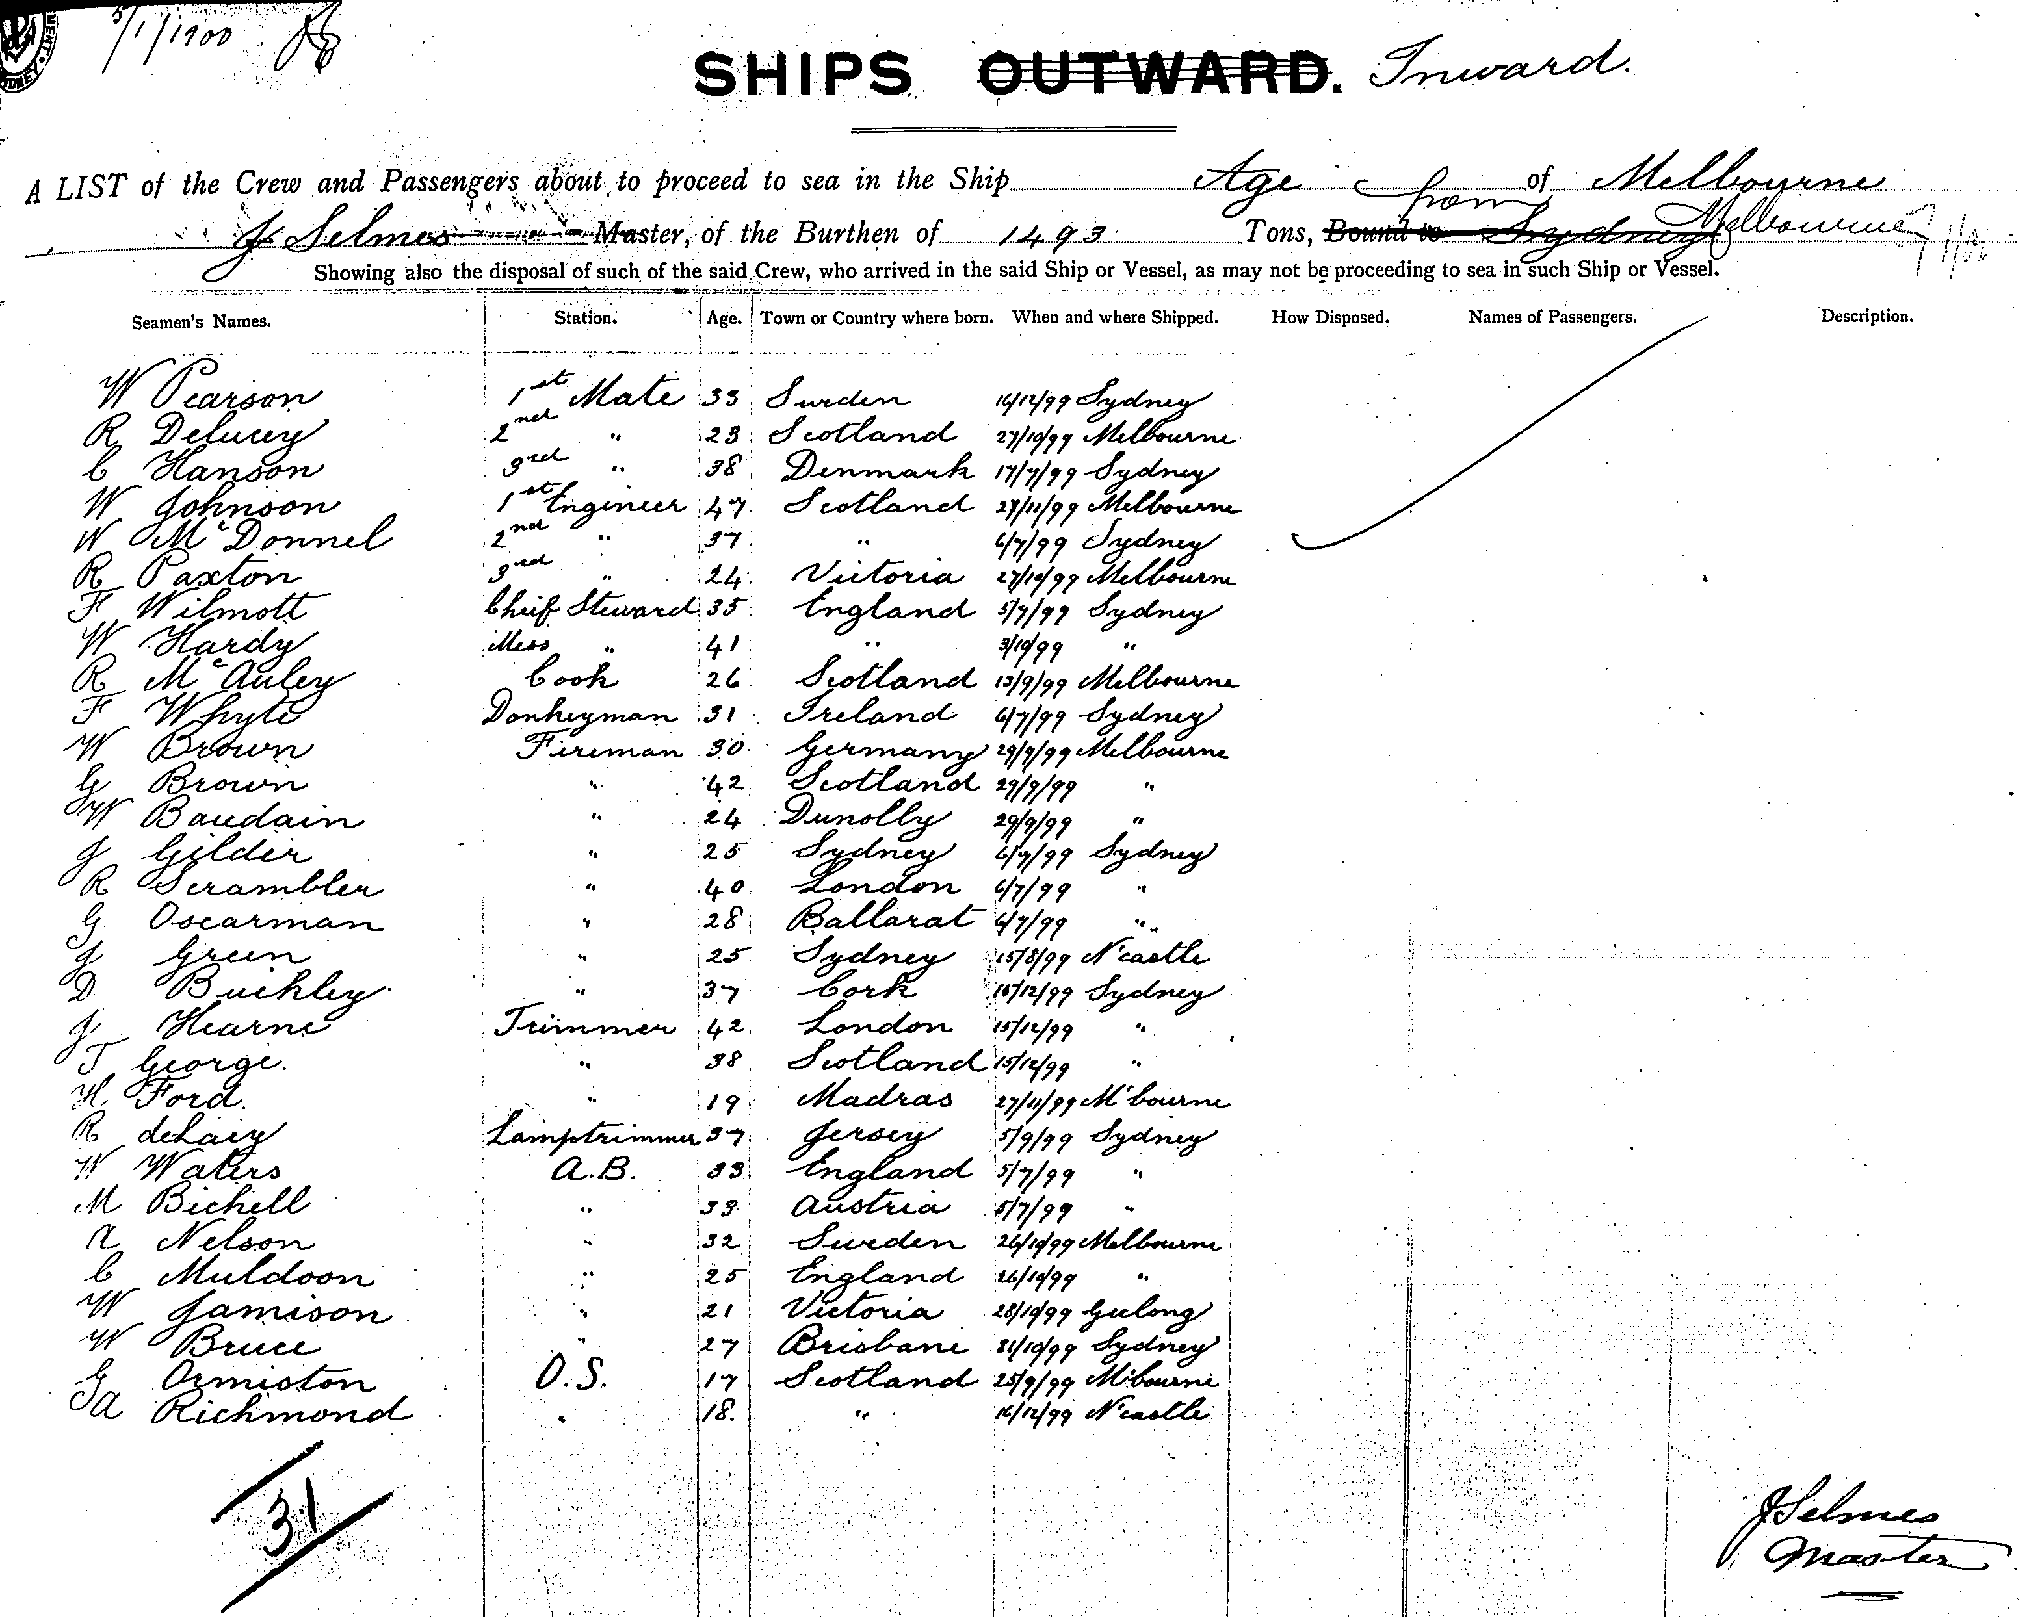 5/1/1900
SHIPS OUTWARD. Inward.
A LIST of the Crew and Passengers about to proceed to sea in the Ship Age of Melbourne
J Selmes Master, of the Burthen of 1493 Tons, Bound to Sydney from Melbourne
Showing also the disposal of such of the said Crew, who arrived in the said Ship or Vessel, as may not be proceeding to sea in such Ship or Vessel.
Seamen's Names. Station. Age. Town or Country where born. When and where Shipped. How Disposed. Names of Passengers. Description.
W Pearson 1st Mate 33 Sweden 16/12/99 Sydney
R Delucey 2nd " 23 Scotland 27/10/99 Melbourne
C Hanson 3rd " 38 Denmark 17/7/99 Sydney
W Johnson 1st Engineer 47 Scotland 27/11/99 Melbourne
W McDonnel 2nd " 37 " 6/7/99 Sydney
R Paxton 3rd " 24 Victoria 27/10/99 Melbourne
F Wilmott Cheif Steward 35 England 5/7/99 Sydney
W Hardy Mess " 41 " 3/10/99 "
R McAuley Cook 26 Scotland 13/9/99 Melbourne
F Whyte Donkeyman 31 Ireland 6/7/99 Sydney
W Brown Fireman 30 Germany 29/9/99 Melbourne
G Brown " 42 Scotland 29/9/99 "
W Baudain " 24 Dunolly 29/9/99 "
J Gilder " 25 Sydney 6/7/99 Sydney
R Scrambler " 40 London 6/7/99 "
G Oscarman " 28 Ballarat 6/7/99 "
J Green " 25 Sydney 15/8/99 N'castle
D Buckley " 37 Cork 15/12/99 Sydney
J Hearne Trimmer 42 London 15/12/99 "
T George. " 38 Scotland 15/12/99 "
H Ford. " 19 Madras 27/11/99 M'bourne
R deLacy Lamptrimmer 37 Jersey 5/9/99 Sydney
W Waters A.B. 33 England 5/7/99 "
M Bichell " 33 Austria 5/7/99 "
A Nelson " 32 Sweden 26/10/99 Melbourne
C Muldoon " 25 England 26/10/99 "
W Jamison " 21 Victoria 28/10/99 Geelong
W Bruce " 27 Brisbane 31/10/99 Sydney
G Ormiston O.S. 17 Scotland 25/9/99 M'bourne
A Richmond " 18. " 16/12/99 N'castle
31
J Selmes
Master